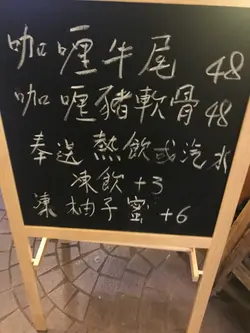 咖喱牛尾 48
咖喱豬軟骨 48
奉送熱飲或汽水
凍飲 +3
凍柚子蜜 +6